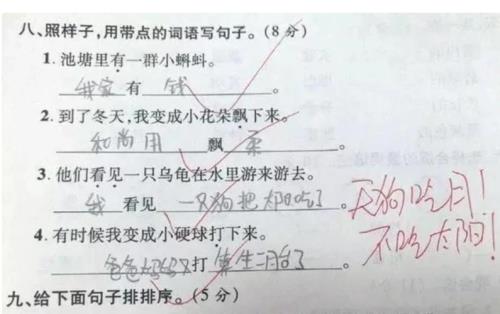 八、照样子，用带点的词语写句子。（8分）
1.池塘里有一群小蝌蚪。
我家有钱。
2.到了冬天，我变成小花朵飘下来。
和尚用飘柔。
3.他们看见一只乌龟在水里游来游去。
我看见一只狗把太阳吃了。
天狗吃月！
不吃太阳！
4.有时候我变成小硬球打下来。
爸爸妈妈又打算生二月台了。
九、给下面句子排排序。（5分）